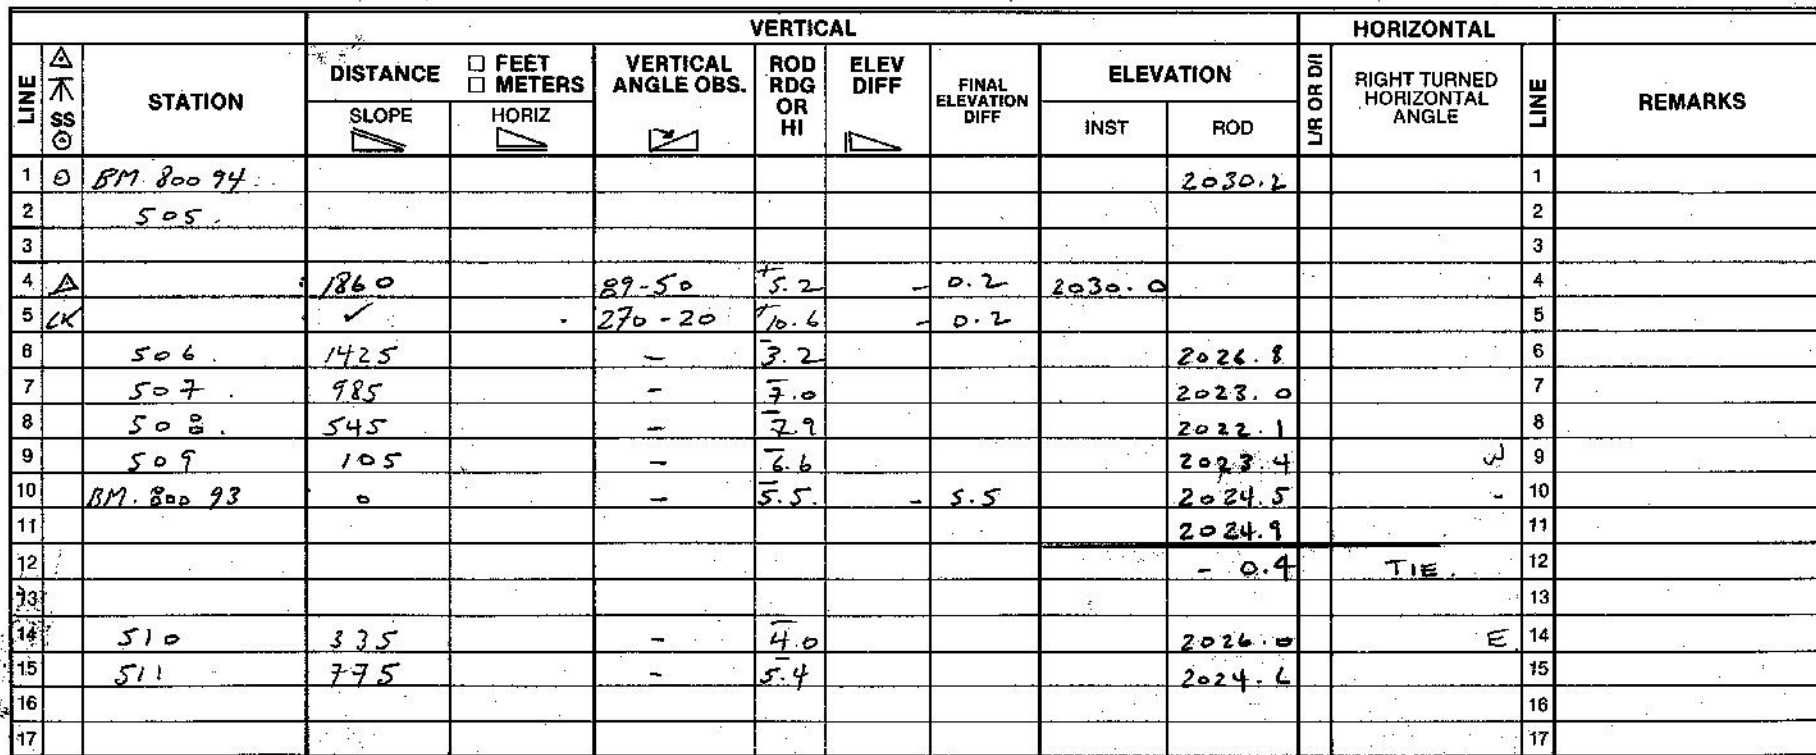 VERTICAL HORIZONTAL
LINE SS STATION DISTANCE □ FEET □ METERS SLOPE HORIZ VERTICAL ANGLE OBS. ROD RDG OR HI ELEV DIFF FINAL ELEVATION DIFF ELEVATION INST ROD L/R OR D/I RIGHT TURNED HORIZONTAL ANGLE LINE REMARKS
1 ⊙ BM. 80094 2030.2 1
2 505. 2
3 3
4 △ 1860 89-50 +5.2 - 0.2 2030.0 4
5 CK ✓ 270-20 +10.6 - 0.2 5
6 506. 1425 - -3.2 2026.8 6
7 507. 985 - -7.0 2023.0 7
8 508. 545 - -7.9 2022.1 8
9 509 105 - -6.6 2023.4 W 9
10 BM. 80093 0 - -5.5. - 5.5 2024.5 - 10
11 2024.9 11
12 - 0.4 TIE. 12
13 13
14 510 335 - -4.0 2026.0 E 14
15 511 775 - -5.4 2024.6 15
16 16
17 17